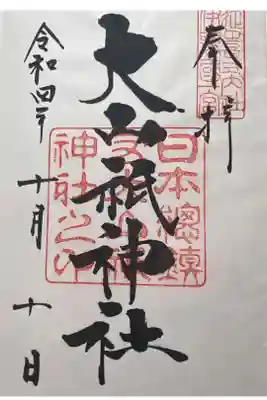 奉拝
日本總鎮
大山祇神社
神社之印
令和四年十月十日